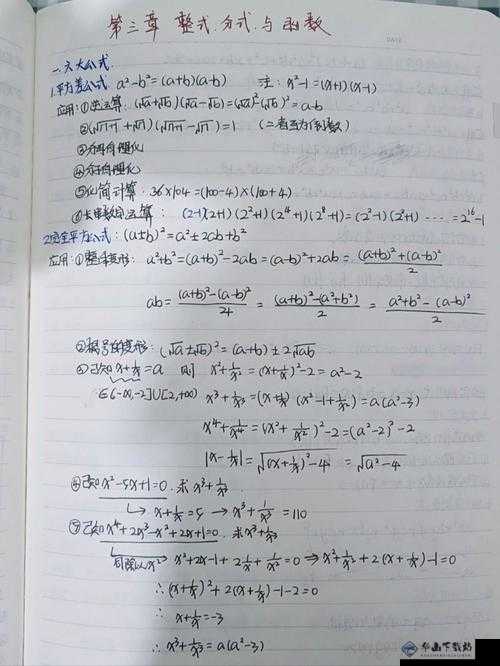 第三章 整式.分式.与函数
DATE
一.六大公式.
1.平方差公式. a²-b²=(a+b)(a-b) 注: x²-1=(x+1)(x-1)
应用:①逆运算.(√a+√b)(√a-√b)=(√a)²-(√b)²=a-b
②(√n+1+√n)(√n+1-√n)=1 (二者互为倒数)
③分母有理化
④分子有理化
⑤化简计算. 36×104=(100-4)×(100+4)
⑥长串数的运算: (2-1)(2+1)(2²+1)(2⁴+1)(2⁸+1)=(2²-1)(2²+1) ⋯⋯=2¹⁶-1
2.完全平方公式:(a±b)²=a²±2ab+b²
应用:①整体变形: a²+b²=(a+b)²-2ab=(a-b)²+2ab=((a+b)²+(a-b)²)/2
ab=((a+b)²-(a-b)²)/4=((a+b)²-(a²+b²))/2=(a²+b²-(a-b)²)/2
②根号的变形:(√a±√b)²=(a+b)±2√ab
已知x+1/x=a 则 x²+1/x²=(x+1/x)²-2=a²-2
∈(-∞,-2]∪[2,+∞) x³+1/x³=(x+1/x)(x²-1+1/x²)=a(a²-3)
x⁴+1/x⁴=(x²+1/x²)²-2=(a²-2)²-2
|x-1/x|=√((x+1/x)²-4)=√(a²-4)
④已知x²-5x+1=0.求x³+1/x³
↳x+1/x=5→x³+1/x³=110
⑤已知x⁴+2x³-x²+2x+1=0. 求x³+1/x³
同除以x² x²+2x-1+2·1/x+1/x²=0⇒x²+1/x²+2(x+1/x)-1=0
∴(x+1/x)²+2(x+1/x)-1-2=0
∴ x+1/x=-3
∴x³+1/x³=a(a²-3)
华山下载站